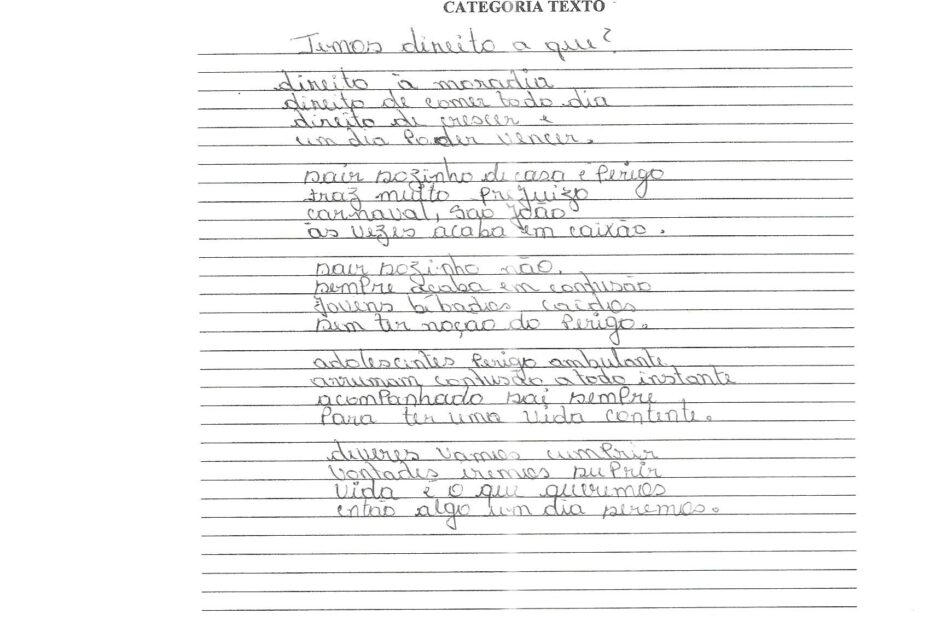 CATEGORIA TEXTO
Temos direito a que?
direito à moradia
direito de comer todo dia
direito de crescer e
um dia Poder vencer.
sair sozinho de casa é Perigo
traz muito Prejuizo
carnaval, São João
às vezes acaba em caixão.
sair sozinho não.
sempre acaba em confusão
Jovens bêbados caídos
sem ter noção do Perigo.
adolescentes Perigo ambulante
arrumam confusão a todo instante
acompanhado sai sempre
Para ter uma vida contente.
deveres vamos cumprir
vontades iremos suprir
vida é o que queremos
então algo um dia seremos.